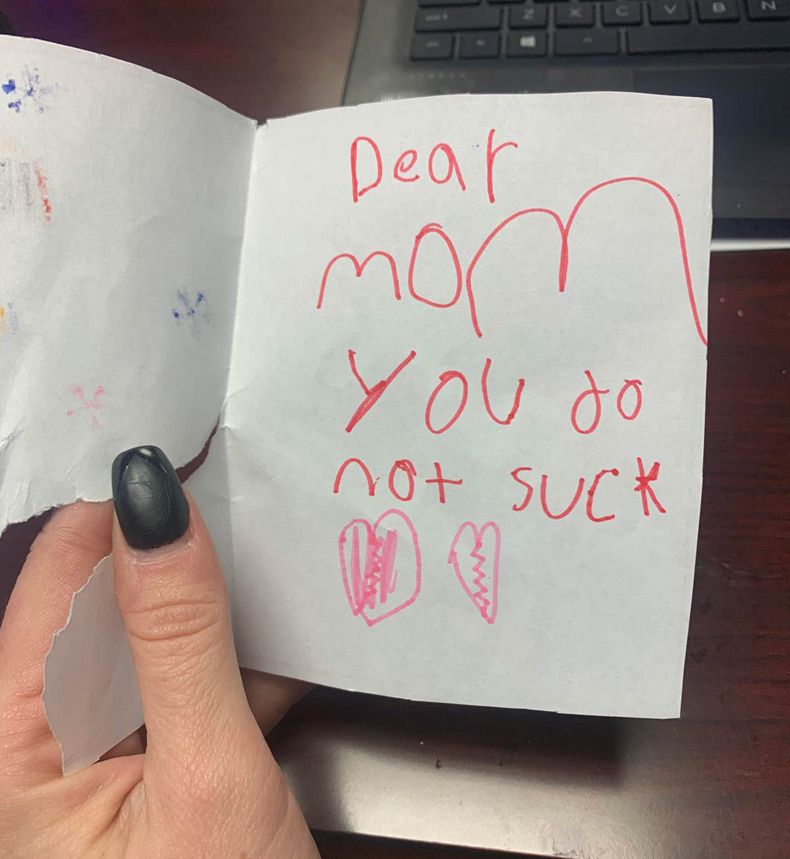 Dear
mom
You do
not suck
Z X C V B N